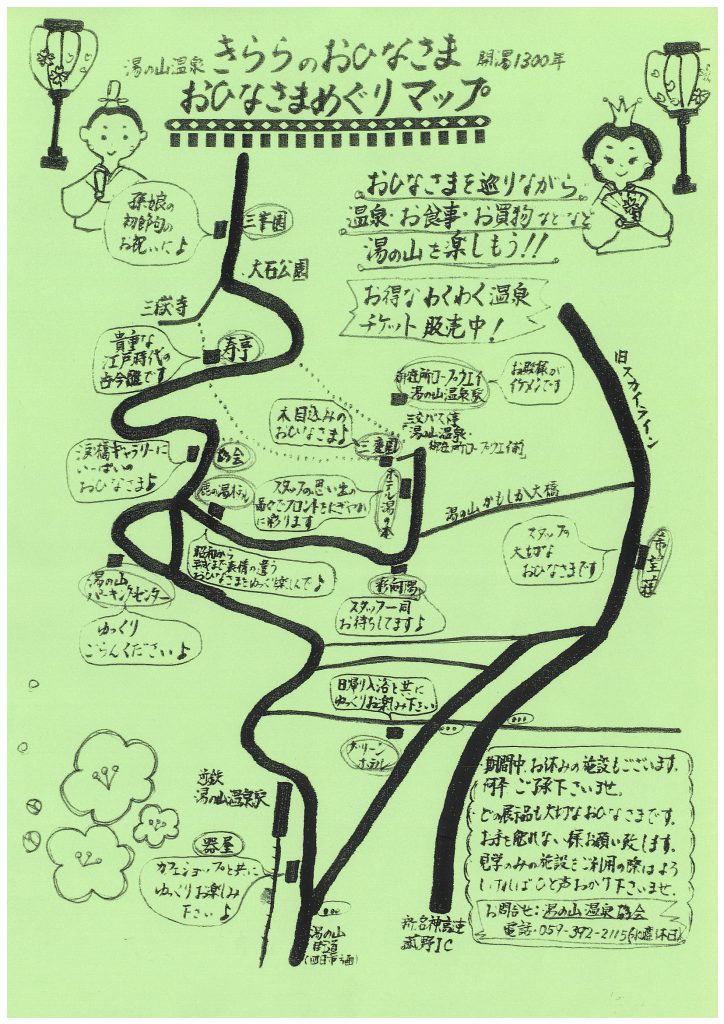 湯の山温泉 きららのおひなさま 開湯1300年
おひなさまめぐりマップ
おひなさまを巡りながら
温泉・お食事・お買物などなど
湯の山を楽しもう!!
お得なわくわく温泉
チケット販売中!
孫娘の
初節句の
お祝いに♪
三峯園
大石公園
三嶽寺
貴重な
江戸時代の
古今雛です
寿亭
御在所ロープウエイ
湯の山温泉駅
お殿様が
イケメンです
旧スカイライン
木目込みの
おひなさま♪
三交バス停
湯の山温泉・
御在所ロープウエイ前
三慶園
涙橋ギャラリーに
いっぱいの
おひなさま♪
協会
鹿の湯ホテル
スタッフの思い出の
品々でフロントをにぎやか
に彩ります
ホテル湯の本
湯の山かもしか大橋
昭和から
平成まで表情の違う
おひなさまをゆっくり楽しんで♪
スタッフの
大切な
おひなさまです
希望荘
湯の山
パーキングセンター
ゆっくり
ごらんください♪
彩向陽
スタッフ一同
お待ちしてます♪
日帰り入浴と共に
ゆっくりお楽しみ下さい
グリーン
ホテル
近鉄
湯の山温泉駅
器屋
カフェショップと共に
ゆっくりお楽しみ
下さい♪
湯の山
街道
(四日市方面)
新名神高速
菰野IC
期間中、お休みの施設もございます。
何卒ご了承下さいませ。
どの展示品も大切なおひなさまです。
お手を触れない様お願い致します。
見学のみの施設をご利用の際はよろ
しければひと声おかけ下さいませ。
お問合せ:湯の山温泉協会
電話・059-392-2115(水曜休日)